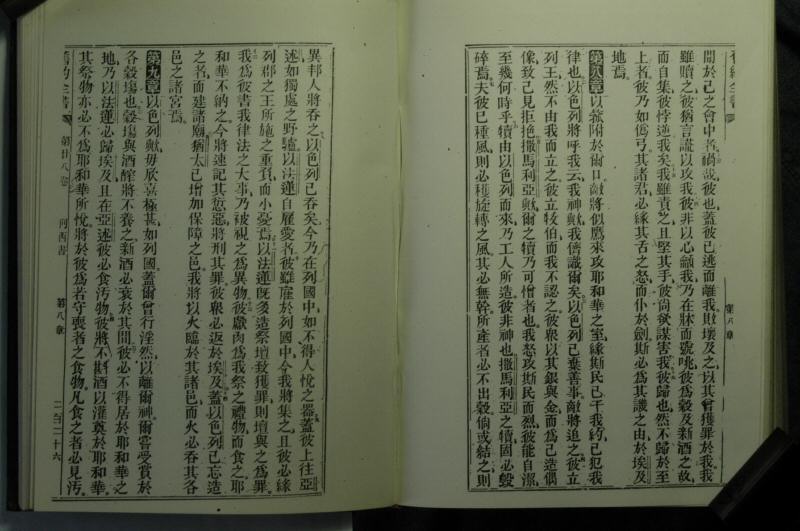 間於己之會中者禍哉彼也蓋彼已逃而離我敗壞及之以其曾獲罪於我我
雖贖之彼猶言謊以攻我彼非以心籲我乃在牀而號咷彼為穀及新酒之故
而自集彼悖逆我矣我雖責之且堅其手彼尚欲謀害我彼歸也然不歸於至
上者彼乃如僞弓其諸君必緣其舌之怒而仆於劍斯必為其譏之由於埃及
地焉
第八章以箛附於爾口敵將似鷹來攻耶和華之室緣斯民已干我約已犯我
律也以色列將呼我云我神歟我儕識爾矣以色列已棄善事敵將追之彼立
列王然不由我而立之彼立牧伯而我不認之彼衆以其銀與金而為己造偶
像致己見拒絕撒馬利亞歟爾之犢乃可憎者也我怒攻斯民而烈彼能自潔
至幾何時乎犢由以色列而來乃工人所造彼非神也撒馬利亞之犢固必毀
碎焉夫彼已種風則必穫旋轉之風其必無幹所產者必不出穀倘或結之則
第八章
異邦人將吞之以色列已吞矣今乃在列國中如不得人悅之器蓋彼上往亞
述如獨處之野驢以法蓮自雇愛者彼雖雇於列國中今我將集之且彼必緣
列郡之王所施之重負而小憂焉以法蓮既多造祭壇致獲罪則壇與之為罪
我為彼書我律法之大事乃被視之為異物彼獻肉為我祭之禮物而食之耶
和華不納之今將速記其愆惡將刑其罪彼衆必返於埃及蓋以色列已忘造
之者而建諸廟猶太已增加保障之邑我將以火臨於其諸邑而火必吞其各
邑之諸宮焉
第九章以色列歟毋欣喜極甚如列國蓋爾曾行淫然以離爾神爾嘗受賞於
各穀塲也穀塲與酒醡將不養之新酒必衰於其間彼必不得居於耶和華之
地乃以法蓮必歸埃及且在亞述彼必食汚物彼將不斟酒以灌奠於耶和華
其祭物亦必不為耶和華所悅將於彼為若守喪者之食物凡食之者必見汚
舊約全書
第廿八卷
何西書
第八章
二百二十六